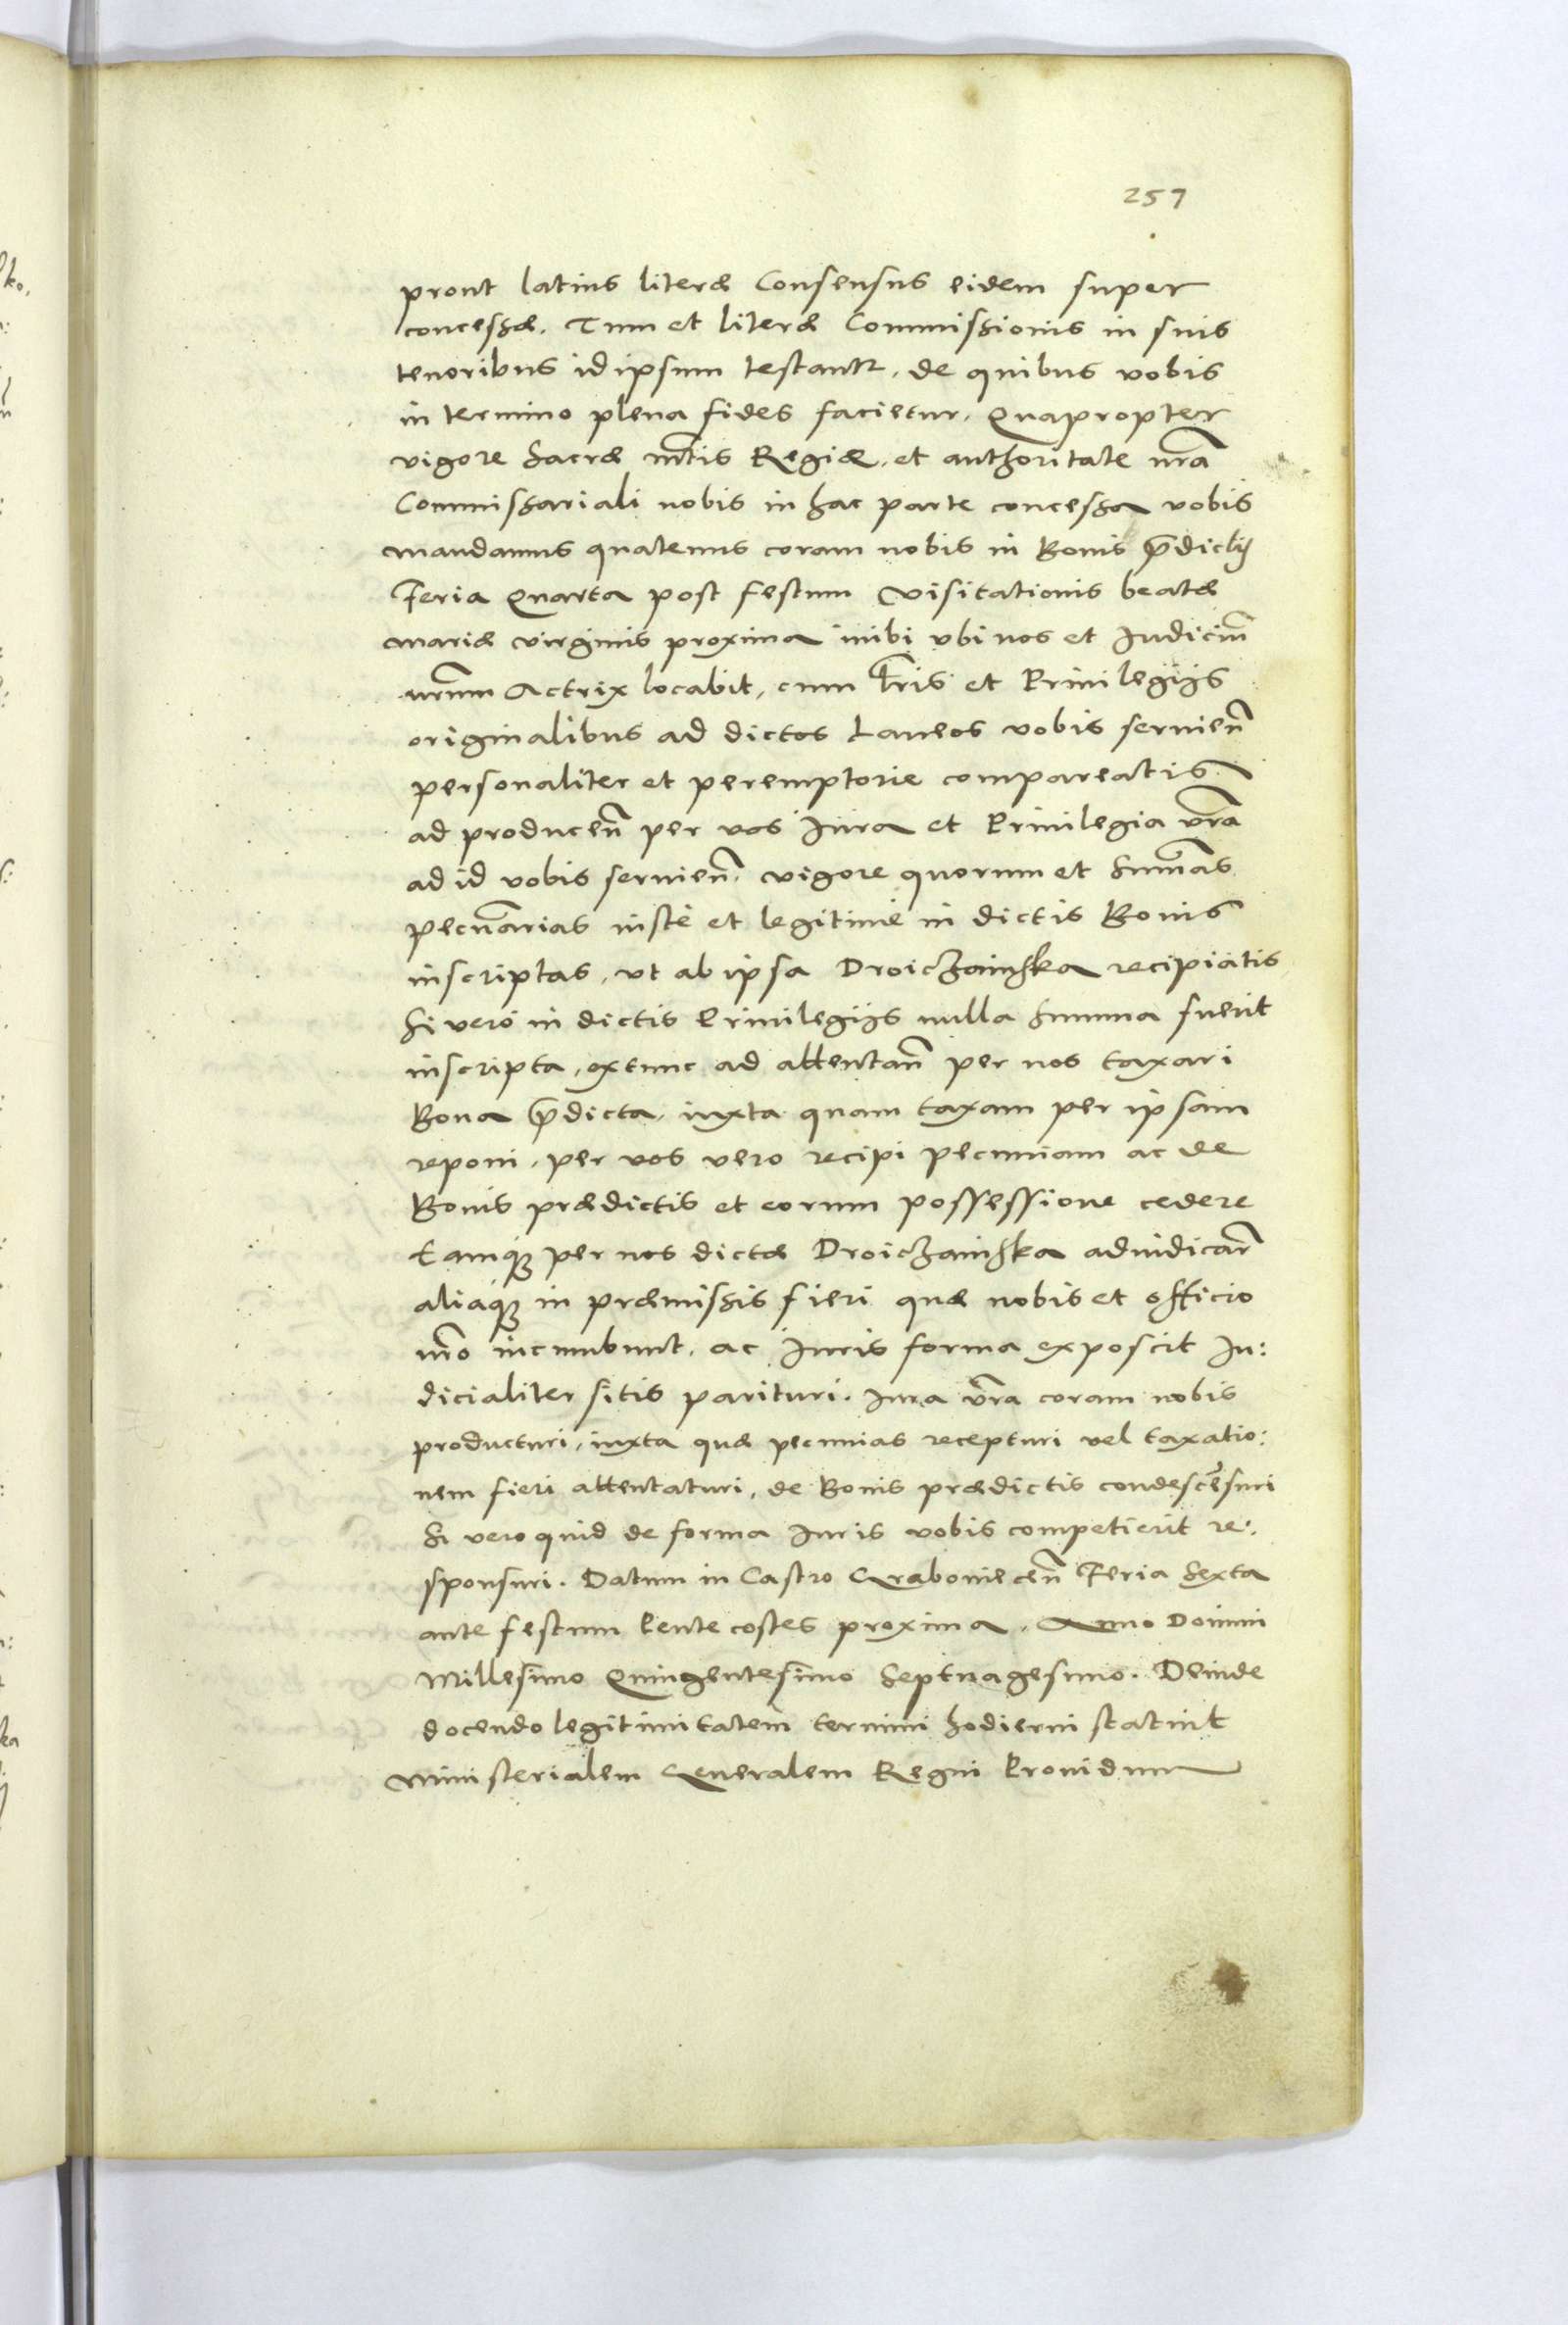 257
prout latius literæ Consensus eidem super
concessæ. Tum et literæ Commissionis in suis
tenoribus id ipsum testantr. de quibus vobis
in termino plena fides facietur. Quapropter
vigore Sacræ Mtis Regiæ. et authoritate nrã
Commissariali nobis in hac parte concessa vobis
mandamus quatenus coram nobis in Bonis p̃dictis
Feria Quarta post festum Visitationis beatæ
Mariæ virginis proxima inibi vbi nos et Iudiciũ
nrũm Actrix locabit, cum Lr̃is et Priuilegijs
originalibus ad dictos Laneos vobis seruieñ
personaliter et peremptorie compareatis
ad produceñ per vos Iura et Priuilegia vrã
ad id vobis seruieñ. vigore quorum et Sum̃as
pecuñarias iustè et legitimè in dictis Bonis
inscriptas, vt ab ipsa Droiczainska recipiatis
Si verò in dictis Priuilegijs nulla Summa fuerit
inscripta, extunc ad attentañ per nos taxari
Bona p̃dicta, iuxta quam taxam per ipsam
reponi, per vos vero recipi pecuniam ac de
Bonis prædictis et eorum possessione cedere
Eamq́ꝫ per nos dictæ Droiczainska adiudicar̃
aliaq́ꝫ in præmissis fieri quæ nobis et officio
nr̃o incumbunt. ac Iuris forma exposcit Iu:
dicialiter sitis parituri. Iura vr̃a coram nobis
producturi, iuxta quæ pecunias recepturi vel taxatio:
nem fieri attentaturi, de Bonis prædictis condesce͂suri
Si vero quid de forma Iuris vobis competierit re:
sponsuri. Datum in Castro Graboniecen̄ Feria Sexta
ante festum Pentecostes proxima. Anno Domini
Millesimo Quingentesimo Septuagesimo. Deinde
docendo legitimitatem termini hodierni statuit
Ministerialem Generalem Regni Prouidum